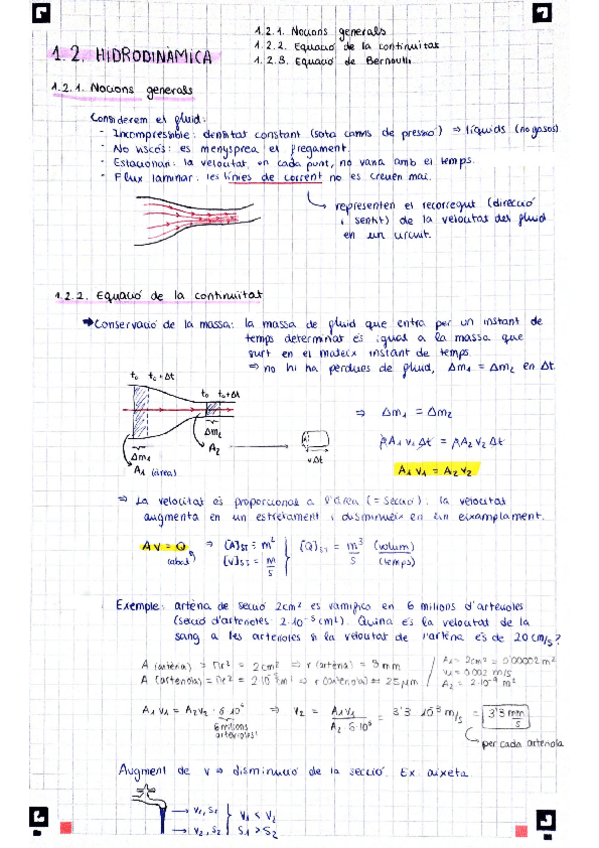 1.2.1. Nocions generals
1.2.2. Equació de la continuïtat
1.2. HIDRODINÀMICA
1.2.3. Equació de Bernoulli
1.2.1. Nocions generals
Considerem el fluid:
- Incompressible: densitat constant (sota canvis de pressió) ⇒ líquids (no gasos)
- No viscós: es menysprea el fregament.
- Estacionari: la velocitat, en cada punt, no varia amb el temps.
- Flux laminar: les línies de corrent no es creuen mai.
representen el recorregut (direcció
i sentit) de la velocitat del fluid
en un circuit.
1.2.2. Equació de la continuïtat
→ Conservació de la massa: la massa de fluid que entra per un instant de
temps determinat és igual a la massa que
surt en el mateix instant de temps.
⇒ no hi ha pèrdues de fluid, Δm₁ = Δm₂ en Δt.
t₀ t₀+Δt
t₀ t₀+Δt
Δm₂
A₂
Δm₁
A₁ (àrea)
vΔt
⇒ Δm₁ = Δm₂
ρA₁v₁Δt = ρA₂v₂Δt
A₁v₁ = A₂v₂
⇒ La velocitat és proporcional a l'àrea (= secció): la velocitat
augmenta en un estretament i disminueix en un eixamplament.
AV = Q ⇒ [A]SI = m² [Q]SI = m³/s (volum)/(temps)
(cabal) [v]SI = m/s
Exemple: artèria de secció 2cm² es ramifica en 6 milions d'arterioles
(secció d'arterioles 2·10⁻⁵cm²). Quina és la velocitat de la
sang a les arterioles si la velocitat de l'artèria és de 20 cm/s?
A (artèria) = πr² = 2cm² ⇒ r (artèria) =
A (arteriola) = πr² =
A₁v₁ = A₂v₂ · 6·10⁶ ⇒ v₂ = A₁v₁ / A₂·6·10⁶ = 3'3·10⁻³ m/s = 3'3 mm/s
6 milions
arterioles!
per cada arteriola
Augment de v ⇒ disminució de la secció. Ex. aixeta
→ v₁, S₁
v₁ < v₂
→ v₂, S₂
S₁ > S₂